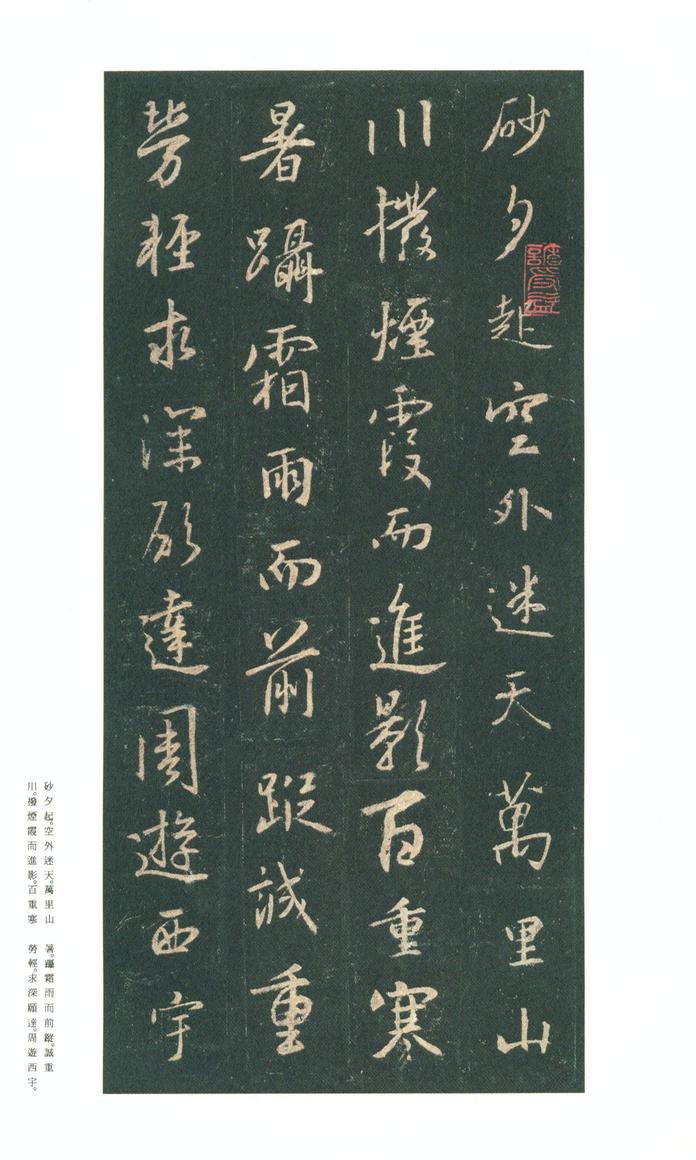 砂夕起空外迷天萬里山
川撥煙霞而進影百重寒
暑躡霜雨而前蹤誠重
勞輕求深願達周遊西宇
砂夕起。空外迷天。萬里山
川。撥煙霞而進影。百重寒
暑。躡霜雨而前蹤。誠重
勞輕。求深願達。周遊西宇。